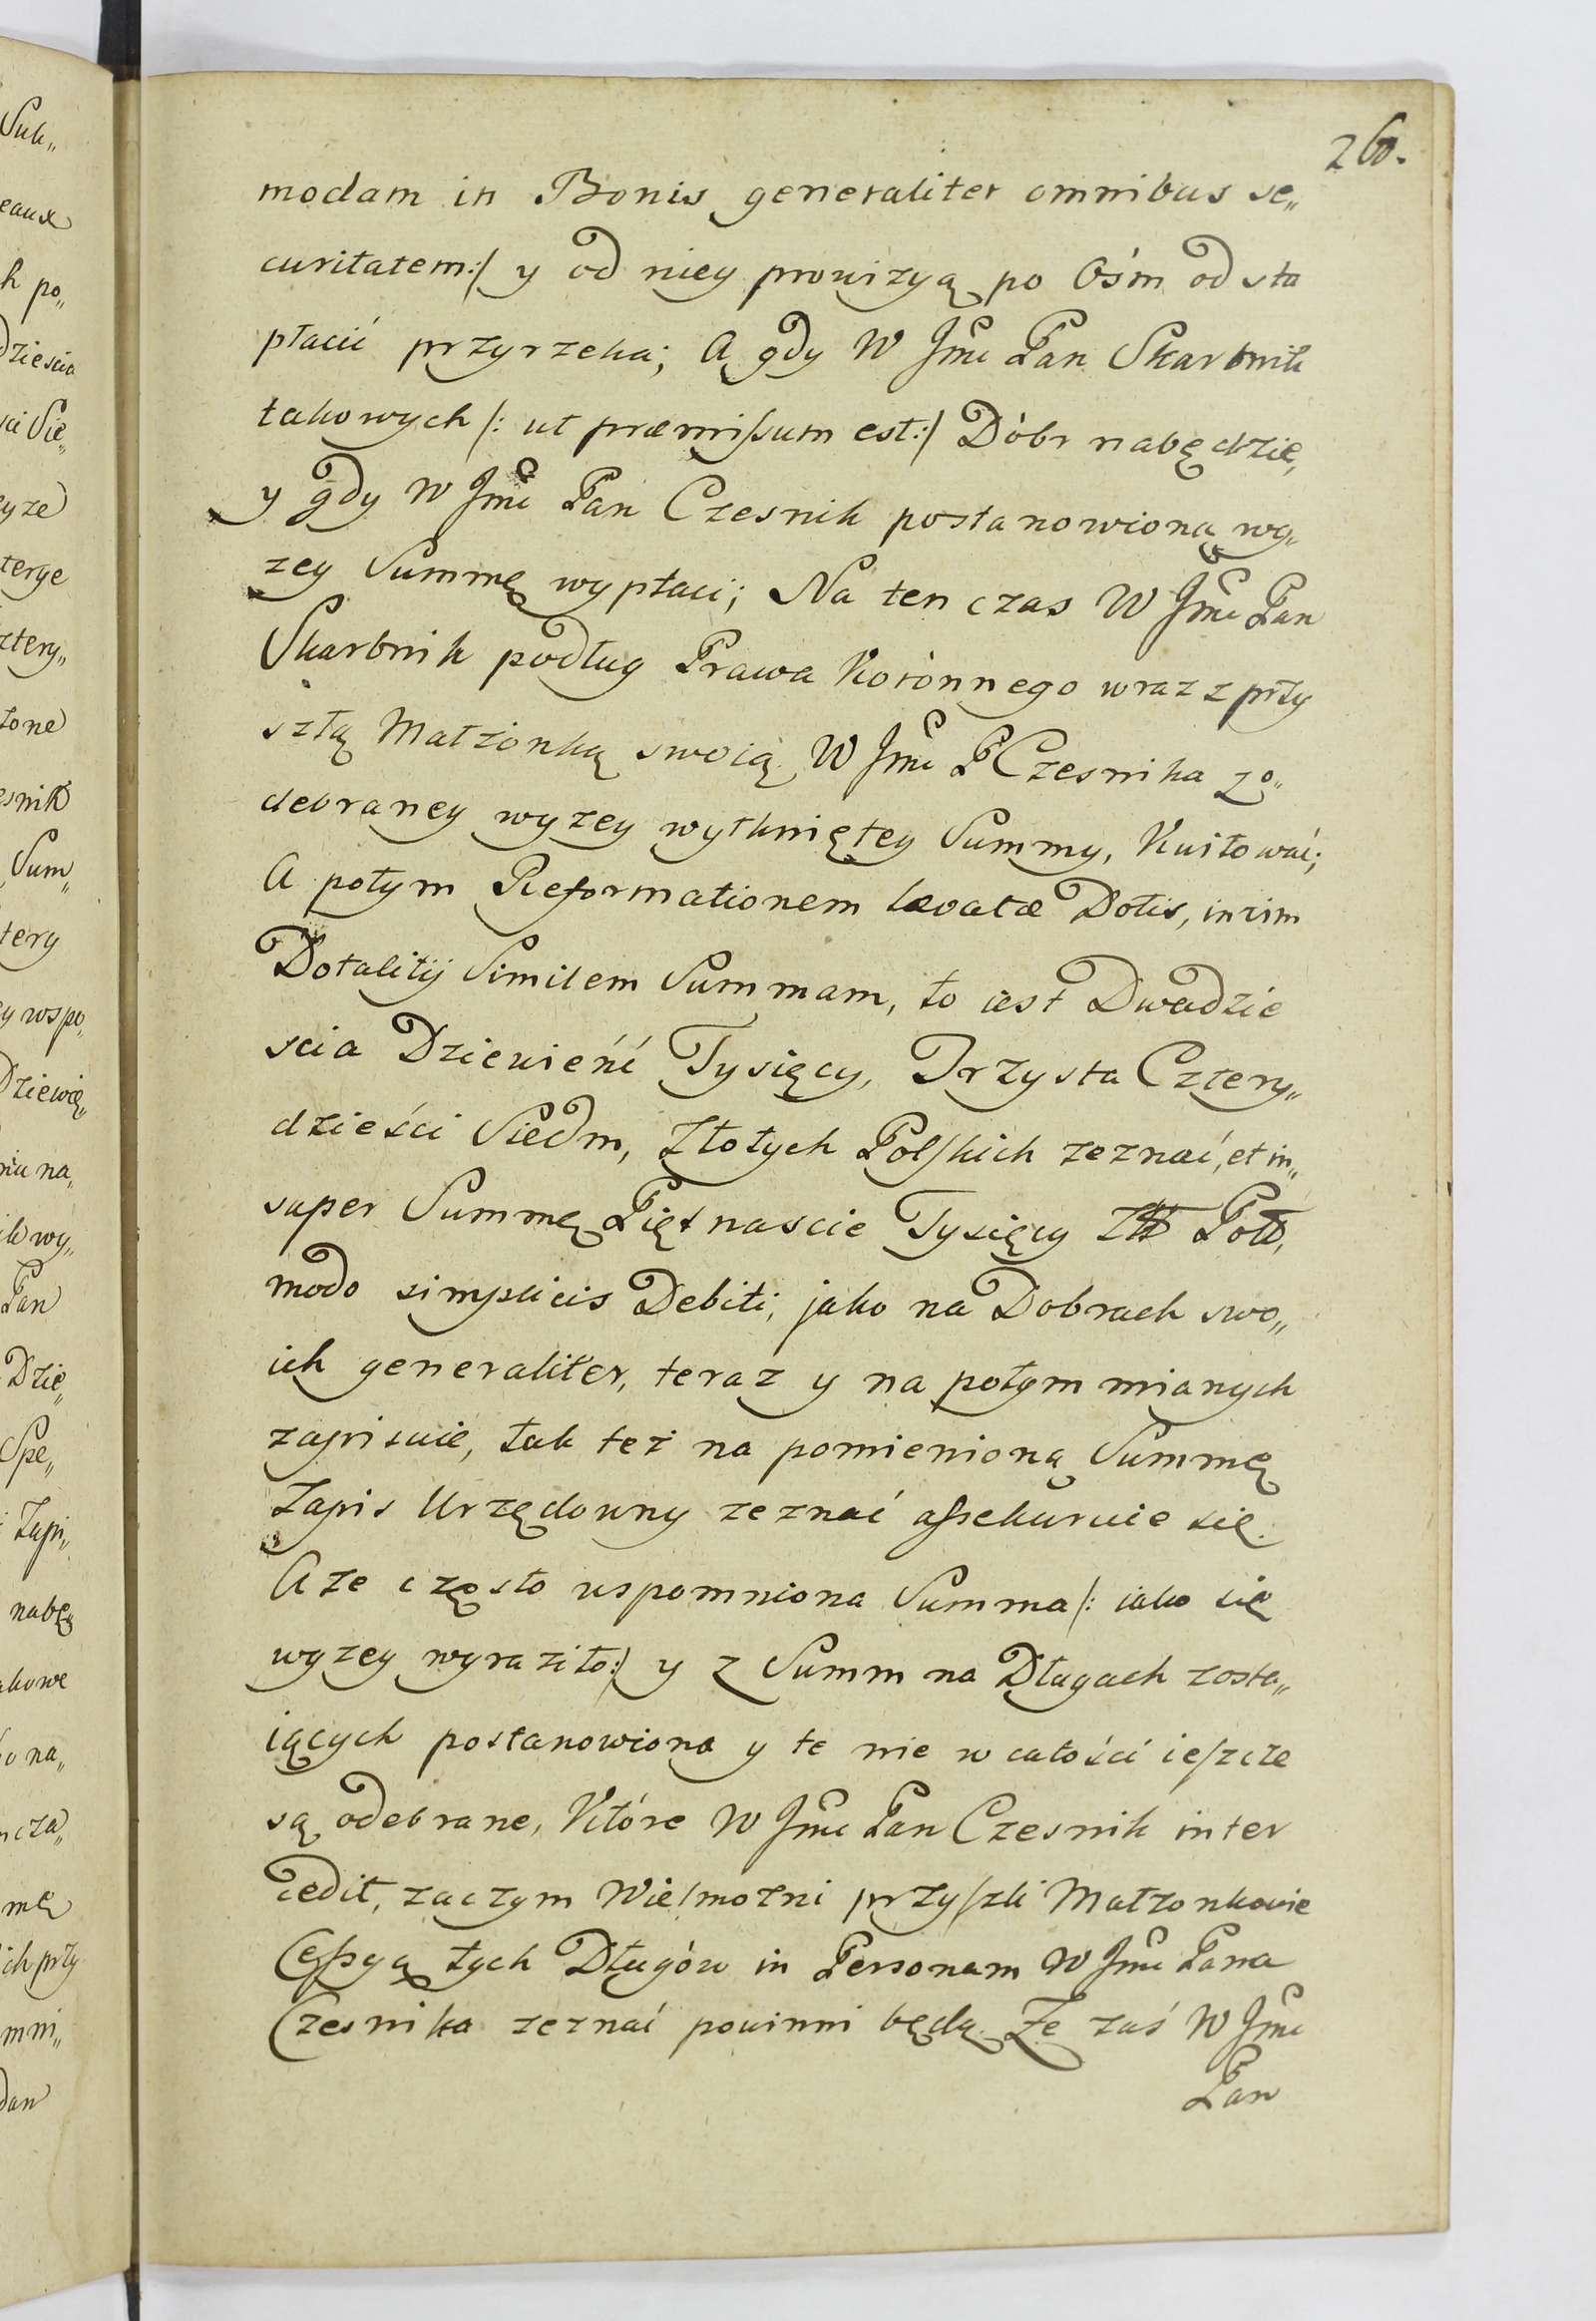 260.
modam in Bonis generaliter omnibus se„
curitatem:/ y od niey prowizyą po Ośm od sta
płacić przyrzeka; A gdy W Jmć Pan Skarbnik
takowych /: ut præmissum est:/ Dóbr nabędzie,
y gdy W Jmć Pan Czesnik postanowioną wy„
zey Summę wypłaci; Na ten czas W Jmć Pan
Skarbnik podług Prawa Koronnego wraz z przy
szłą Małżonką swoią W Jmć P Czesnika zo„
debraney wyzey wytkniętey Summy, Kwitować;
A potym Reformationem levatæ Dotis, in vim
Dotalitij Similem Summam, to iest Dwadzie
scia Dziewięć Tysięcy, Trzysta Cztery„
dzieści Siedm, Złotych Polskich zeznać, et in„
super Summę Piętnascie Tysięcy Złł Poll,
modo simplicis Debiti, jako na Dobrach swo„
ich generaliter, teraz y na potym mianych
zapisuie, tak też na pomienioną Summę
Zapis Urzędowny zeznać assekuruie się.
A ze często wspomniona Summa /: iako się
wyzey wyraziło:/ y z Summ na Długach zosta„
iących postanowiona y te nie w całości ieszcze
są odebrane, Które W Jmć Pan Czesnik inter
cedit, zaczym Wielmozni przyszli Małzonkowie
Cessyą tych Długów in Personam W Jmć Pana
Czesnika zeznać powinni będą. Ze zaś W Jmć
Pan
Suk„
eaux
h po„
dziescia
ci Sie„
eyze
terge
cztery„
zone
esnik
Sum„
tery
y wspo„
Dziewię„
nia na„
Pan
Dzie„
Spe„
Zapi„
nabę„
akowe
o na„
cza„
mę
ich przy
mni„
dan